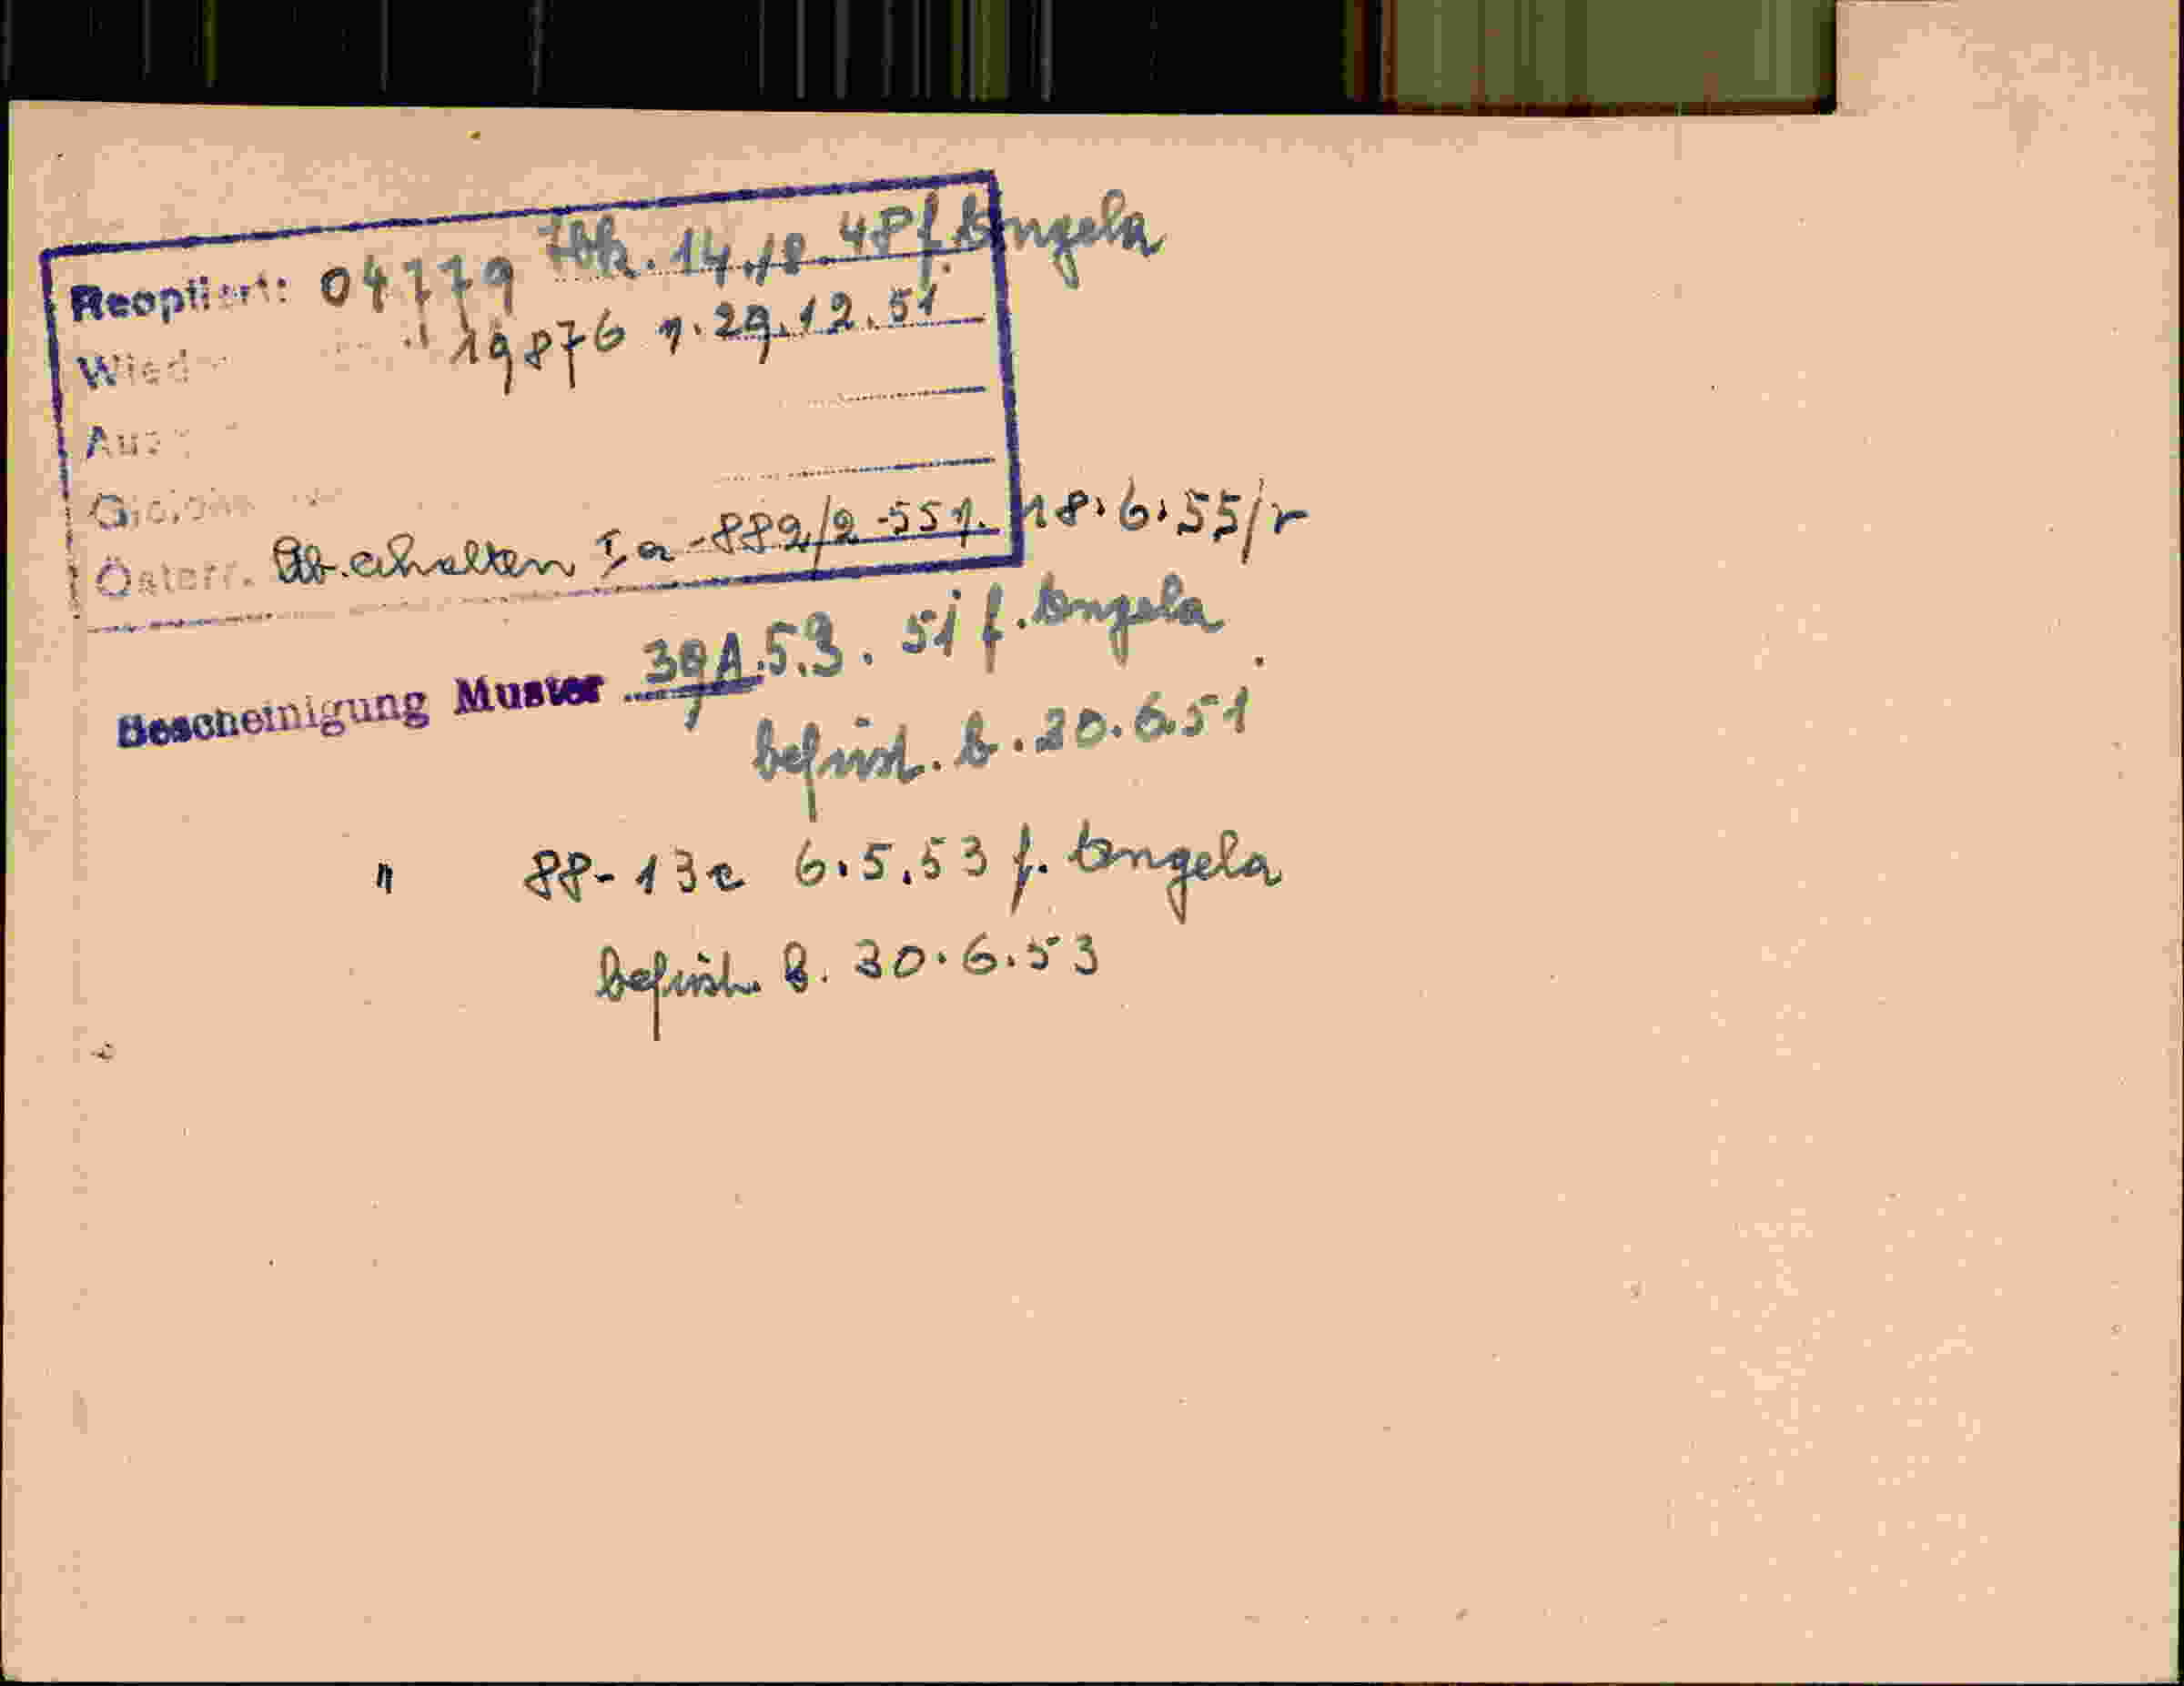 Reoptiert: 04779 Ibk. 14.18.48 f. Angela
19876 v. 29.12.51
Österr. Stb. erhalten Ia-882/2-55 v. 18.6.55/r
Bescheinigung Muster 39A 5.3.51 f. Angela
befrist. b. 30.6.51
" 88-13c 6.5.53 f. Angela
befrist. b. 30.6.53